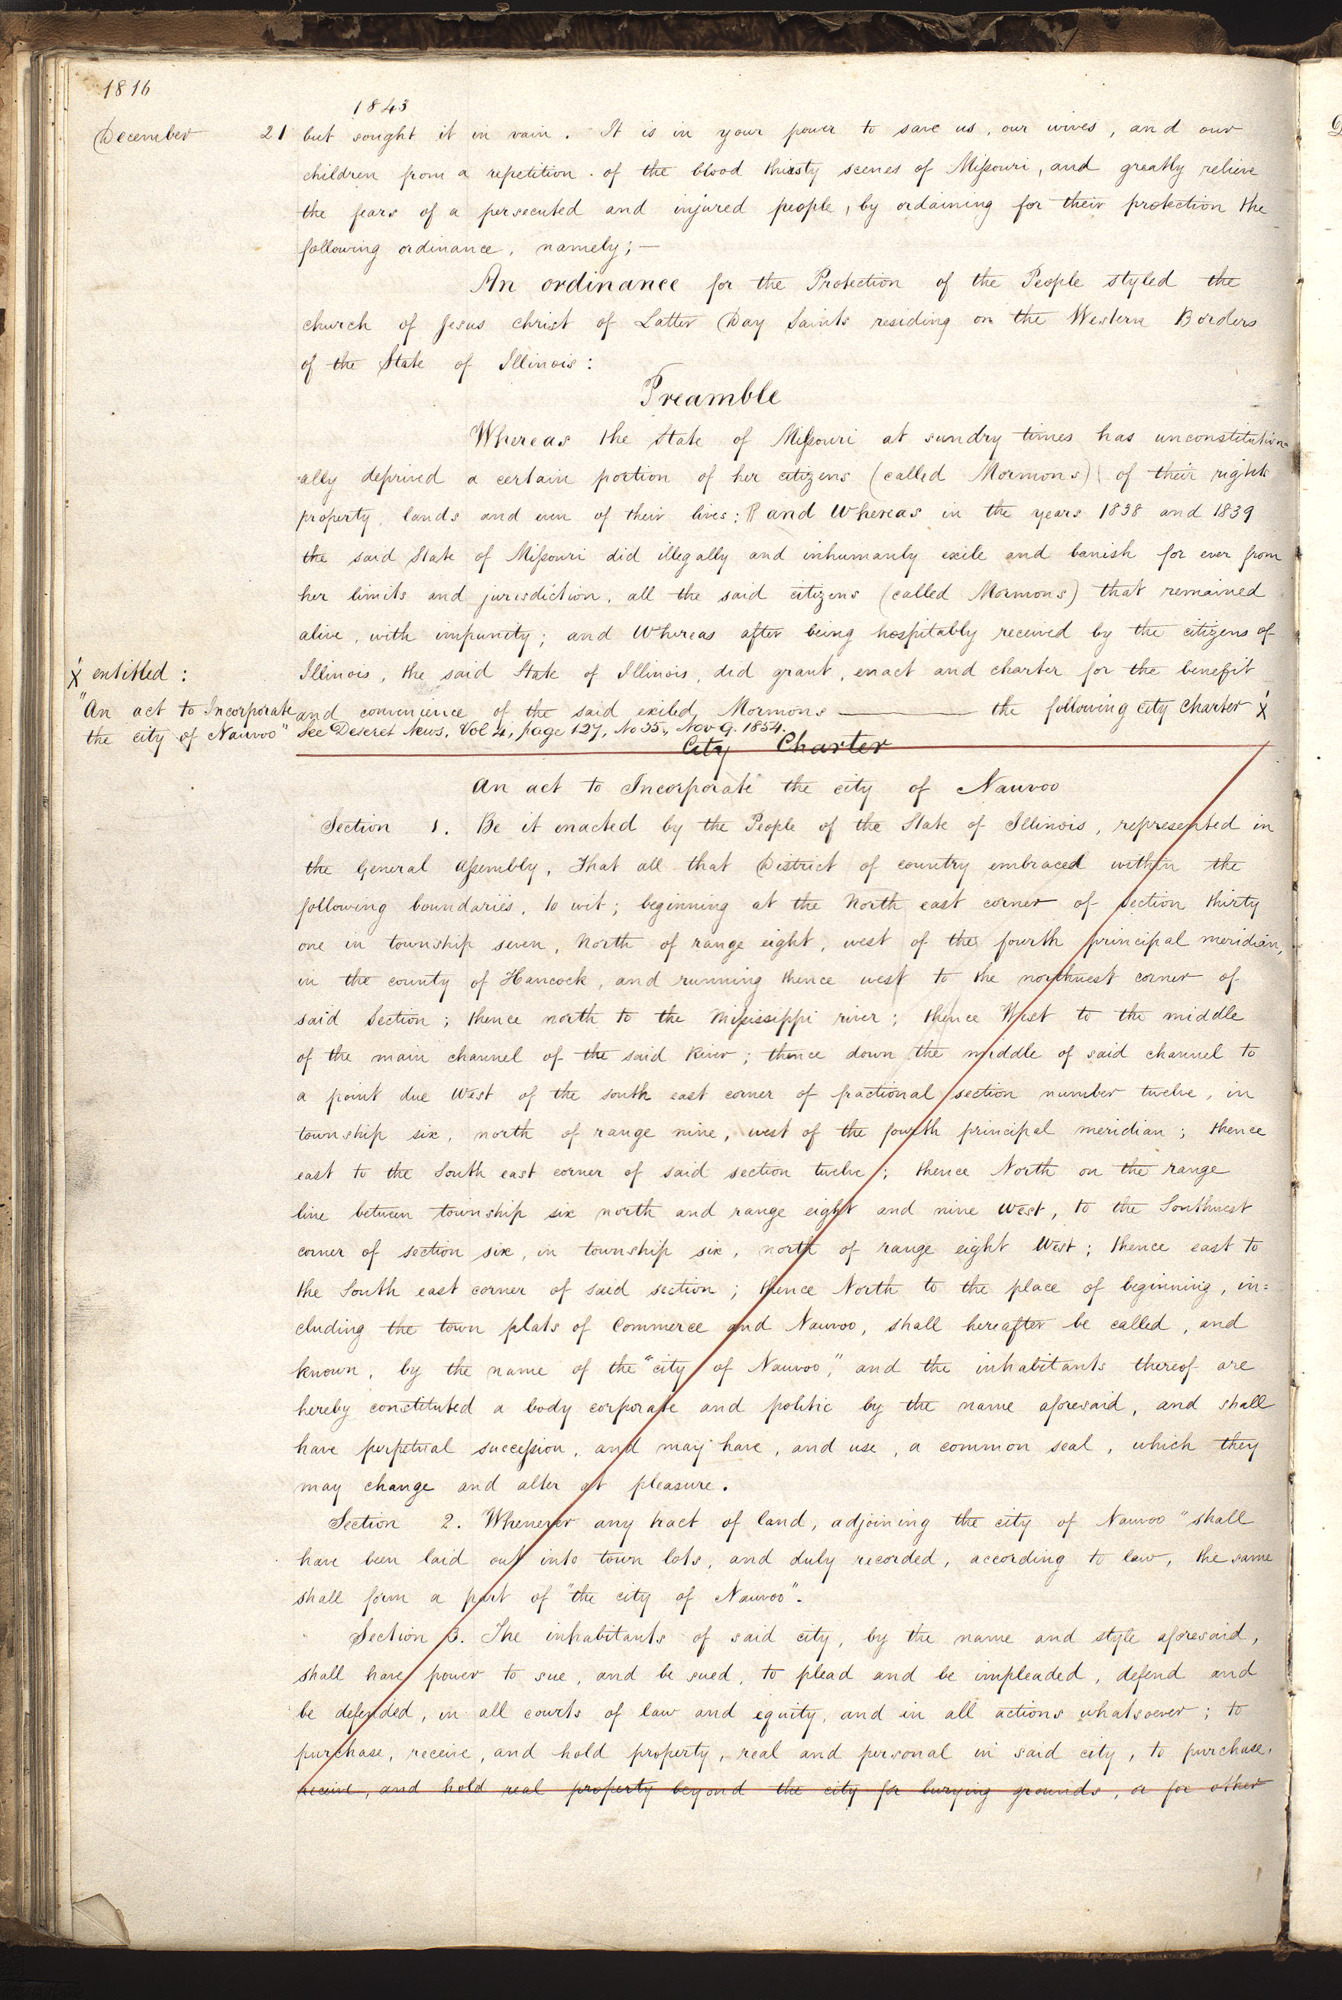 1816
1843
December 21 but sought it in vain. It is in your power to save us, our wives, and our
children from a repetition of the blood thirsty scenes of Missouri, and greatly relieve
the fears of a persecuted and injured people, by ordaining for their protection the
following ordinance, namely; —
An ordinance for the Protection of the People styled the
church of Jesus christ of Latter Day Saints residing on the Western Borders
of the State of Illinois:
Preamble
Whereas the State of Missouri at sundry times has unconstitution-
ally deprived a certain portion of her citizens (called Mormons) of their rights
property, lands and even of their lives: and Whereas in the years 1838 and 1839
the said State of Missouri did illegally and inhumanly exile and banish for ever from
her limits and jurisdiction, all the said citizens (called Mormons) that remained
alive, with impunity; and Whereas after being hospitably received by the citizens of
Illinois, the said State of Illinois, did grant, enact and charter for the benefit
and convenience of the said exiled Mormons ——— the following city charter X
X entitled:
"An act to Incorporate
the city of Nauvoo"
See Deseret News, Vol 4, page 127, No 35, Nov 9. 1854.
City Charter
An act to Incorporate the city of Nauvoo
Section 1. Be it enacted by the People of the State of Illinois, represented in
the General Assembly, That all that District of country embraced within the
following boundaries, to wit; beginning at the North east corner of section thirty
one in township seven, North of range eight, west of the fourth principal meridian,
in the county of Hancock, and running thence west to the northwest corner of
said Section; thence north to the Mississippi river; thence West to the middle
of the main channel of the said River; thence down the middle of said channel to
a point due West of the south east corner of fractional section number twelve, in
township six, north of range nine, west of the fourth principal meridian; thence
east to the South east corner of said section twelve; thence North on the range
line between township six north and range eight and nine West, to the Southwest
corner of section six, in township six, north of range eight West; thence east to
the South east corner of said section; thence North to the place of beginning, in=
cluding the town plats of Commerce and Nauvoo, shall hereafter be called, and
known, by the name of the "city of Nauvoo," and the inhabitants thereof are
hereby constituted a body corporate and politic by the name aforesaid, and shall
have perpetual succession, and may have, and use, a common seal, which they
may change and alter at pleasure.
Section 2. Whenever any tract of land, adjoining the city of Nauvoo" shall
have been laid out into town lots, and duly recorded, according to law, the same
shall form a part of "the city of Nauvoo".
Section 3. The inhabitants of said city, by the name and style aforesaid,
shall have power to sue, and be sued, to plead and be impleaded, defend and
be defended, in all courts of law and equity, and in all actions whatsoever; to
purchase, receive, and hold property, real and personal in said city, to purchase,
receive, and hold real property beyond the city for burying grounds, or for other